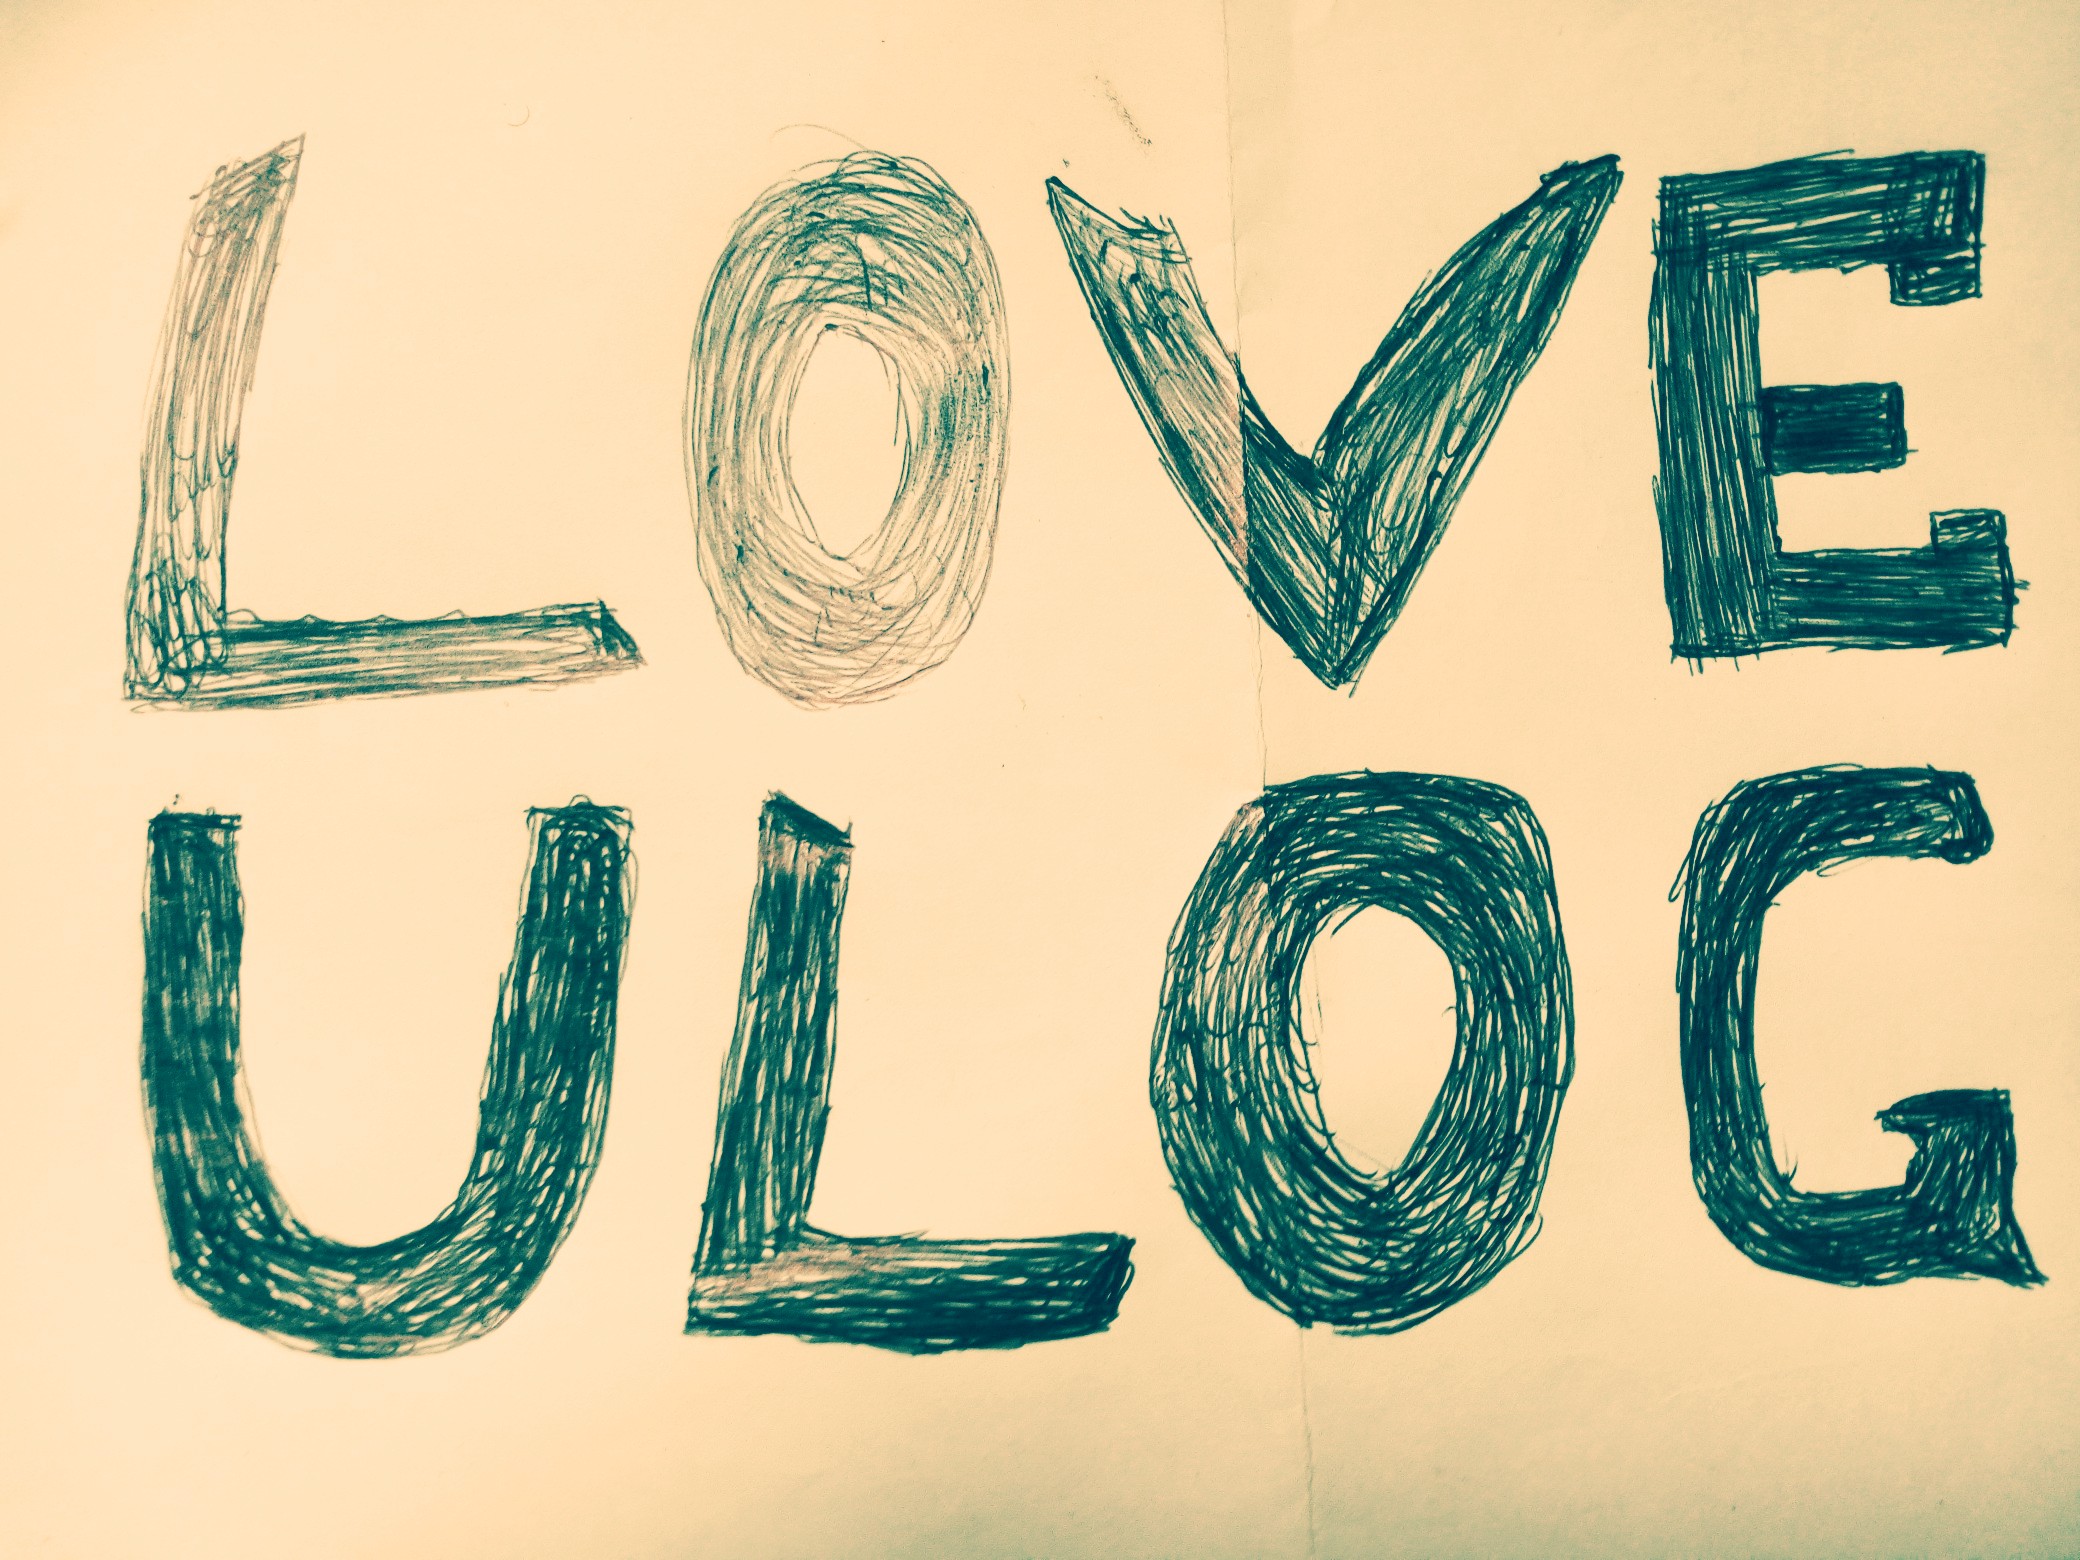 LOVE
ULOG